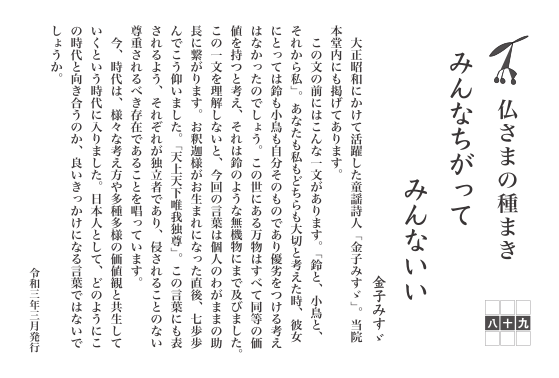 仏さまの種まき
八十九
みんなちがって
みんないい
金子みすゞ
大正昭和にかけて活躍した童謡詩人「金子みすゞ」。当院
本堂内にも掲げてあります。
この文の前にはこんな一文があります。「鈴と、小鳥と、
それから私」。あなたも私もどちらも大切と考えた時、彼女
にとっては鈴も小鳥も自分そのものであり優劣をつける考え
はなかったのでしょう。この世にある万物はすべて同等の価
値を持つと考え、それは鈴のような無機物にまで及びました。
この一文を理解しないと、今回の言葉は個人のわがままの助
長に繋がります。お釈迦様がお生まれになった直後、七歩歩
んでこう仰いました。「天上天下唯我独尊」。この言葉にも表
されるよう、それぞれが独立者であり、侵されることのない
尊重されるべき存在であることを唱っています。
今、時代は、様々な考え方や多種多様の価値観と共生して
いくという時代に入りました。日本人として、どのようにこ
の時代と向き合うのか、良いきっかけになる言葉ではないで
しょうか。
令和三年三月発行